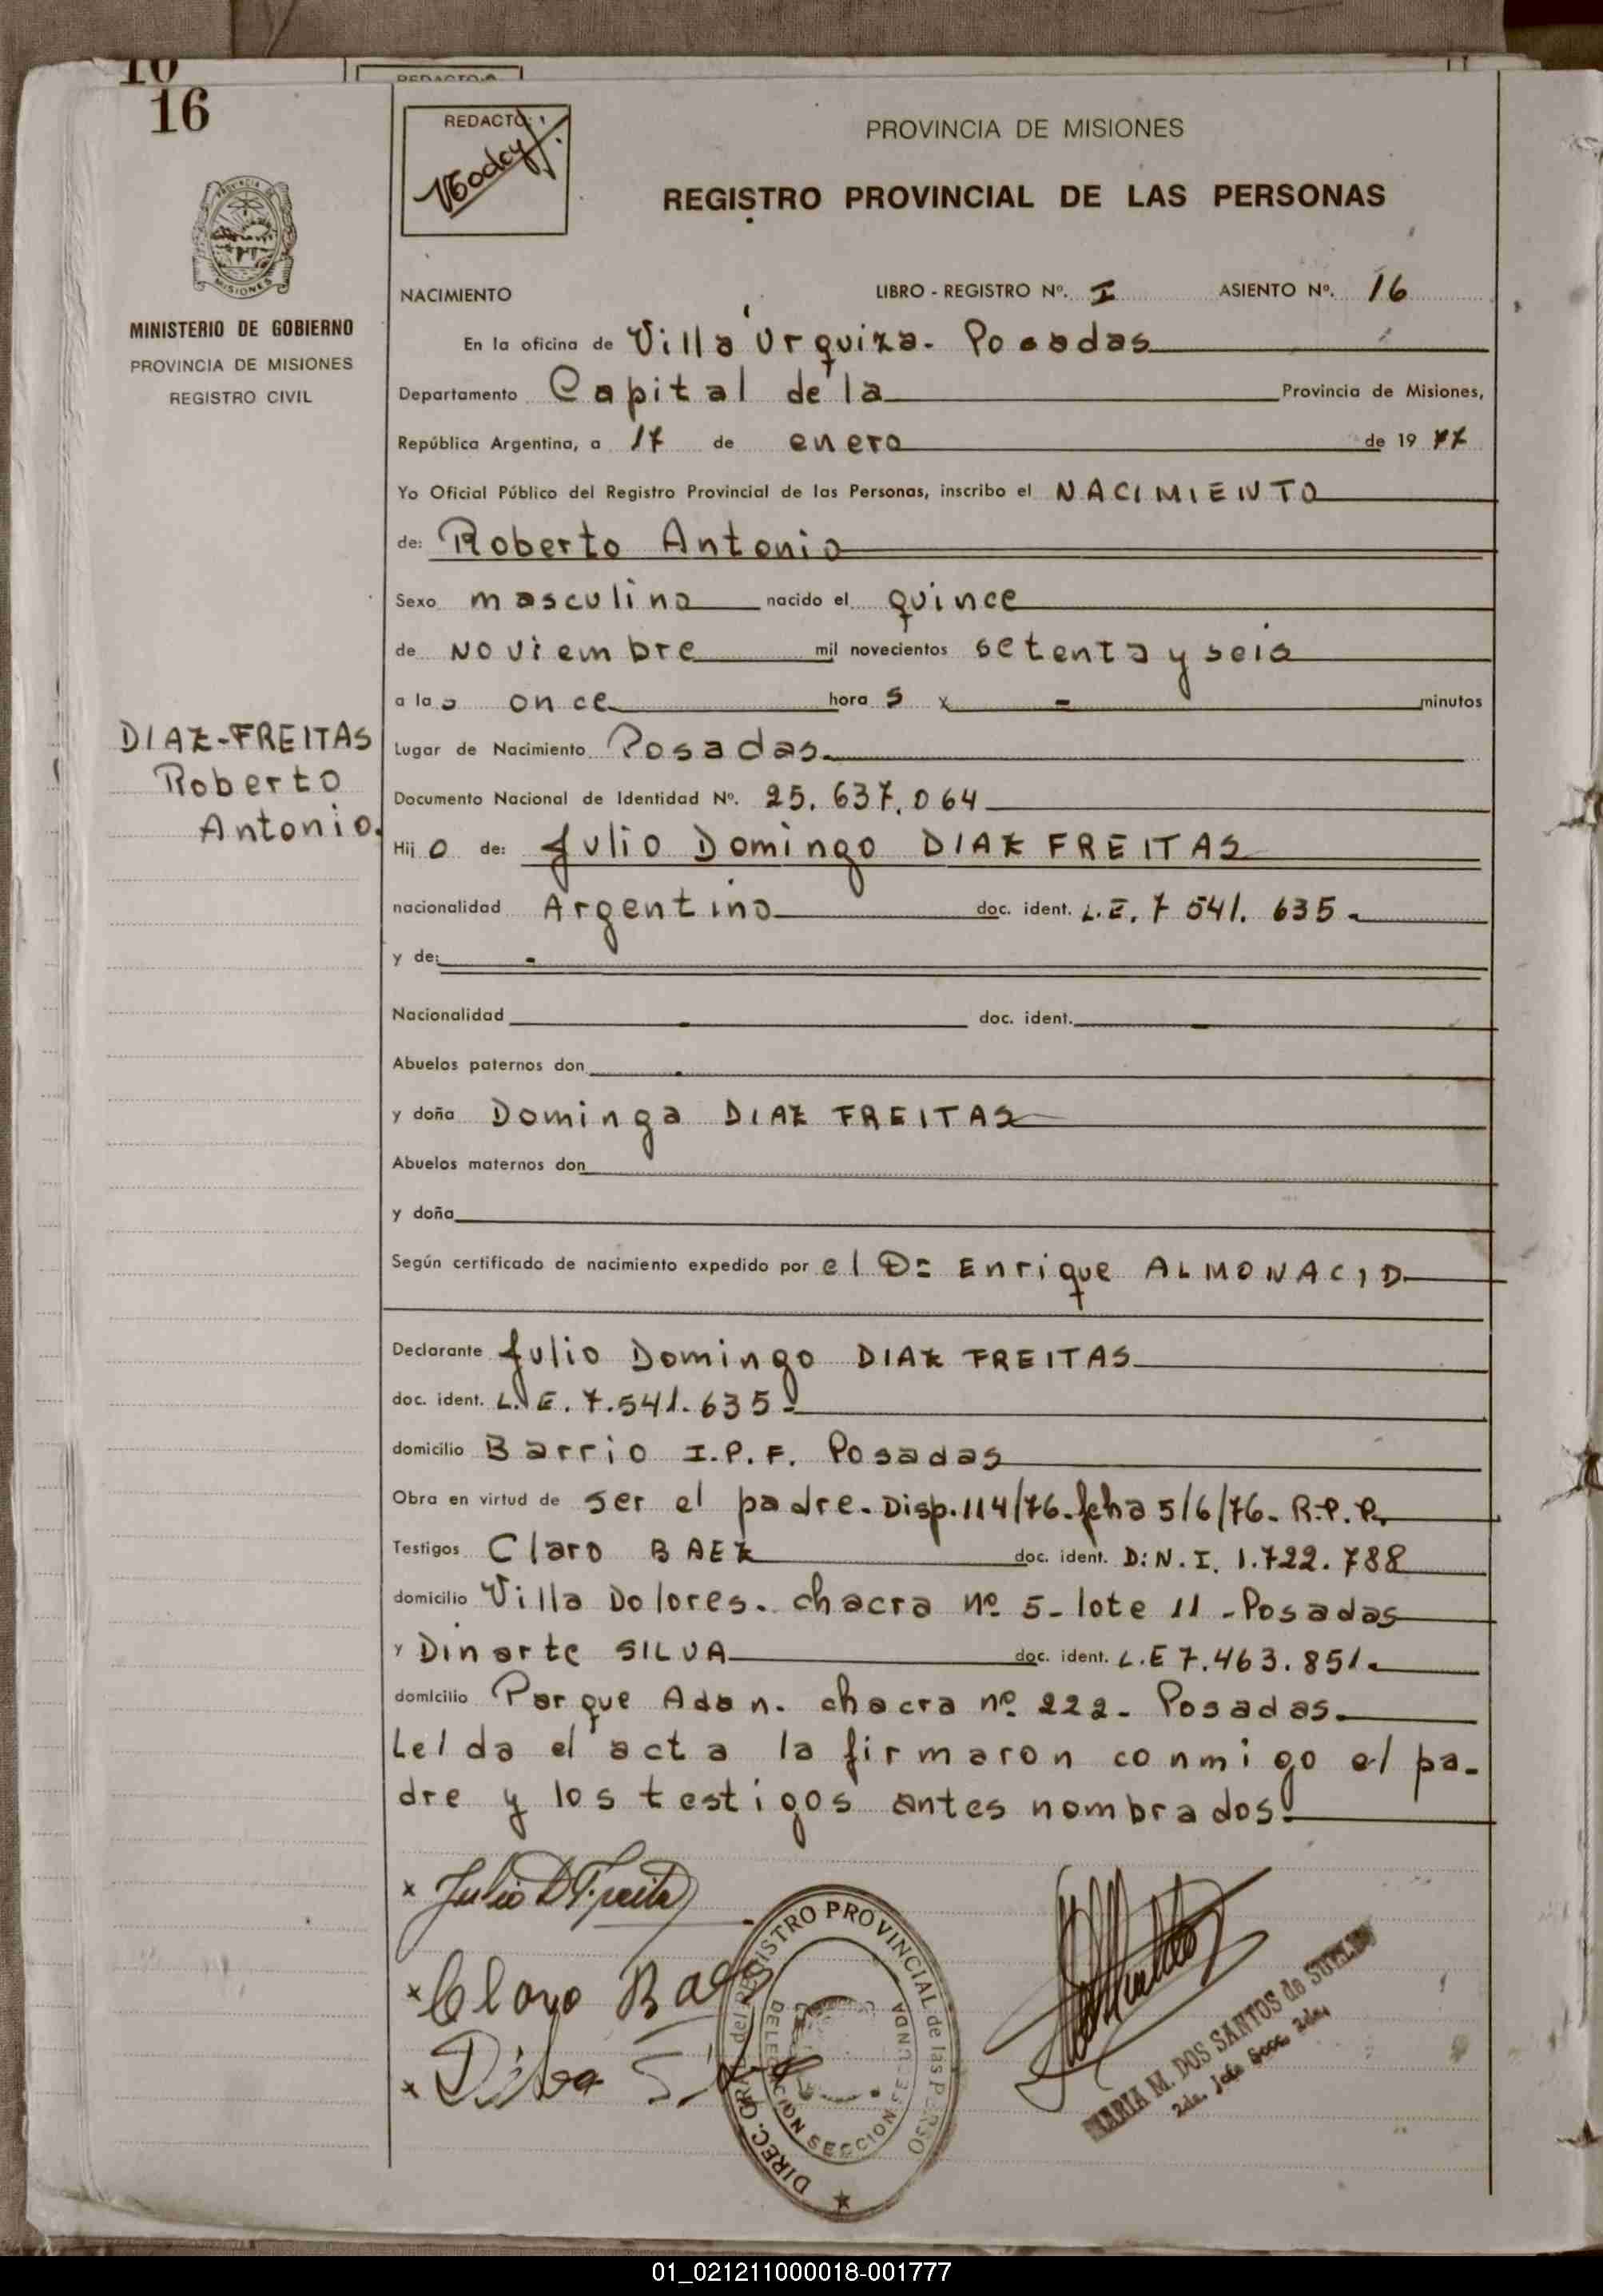 16
REDACTO:
PROVINCIA DE MISIONES
REGISTRO PROVINCIAL DE LAS PERSONAS
MISIONES
MINISTERIO DE GOBIERNO
PROVINCIA DE MISIONES
REGISTRO CIVIL
NACIMIENTO LIBRO - REGISTRO Nº. I ASIENTO Nº. 16
En la oficina de Villa Urquiza. Posadas
Departamento Capital de la Provincia de Misiones,
República Argentina, a 17 de enero de 19 77
Yo Oficial Público del Registro Provincial de las Personas, inscribo el NACIMIENTO
de: Roberto Antonio
Sexo masculino nacido el quince
de Noviembre mil novecientos setenta y seis
a las once horas x - minutos
DIAZ-FREITAS
Roberto
Antonio.
Lugar de Nacimiento Posadas.
Documento Nacional de Identidad Nº. 25.637.064
Hijo de: Julio Domingo DIAZ FREITAS
nacionalidad Argentino doc. ident. L.E. 7 541. 635
y de: -
Nacionalidad - doc. ident. -
Abuelos paternos don -
y doña Dominga DIAZ FREITAS
Abuelos maternos don
y doña
Según certificado de nacimiento expedido por el Dr Enrique ALMONACID
Declarante Julio Domingo DIAZ FREITAS
doc. ident. L.E. 7.541.635
domicilio Barrio I.P.F. Posadas
Obra en virtud de ser el padre. Disp. 114/76. fcha 5/6/76. R.P.P.
Testigos Claro BAEZ doc. ident. D.N.I. 1.722.788
domicilio Villa Dolores. chacra nº 5- lote 11 - Posadas
y Dinarte SILVA doc. ident. L.E 7.463.851
domicilio Parque Adan. chacra nº 222- Posadas.
Leida el acta la firmaron conmigo el pa-
dre y los testigos antes nombrados.
x Julio D Freita
x Claro Baez
x
DIREC. GRAL del REGISTRO PROVINCIAL de las PERSO
DELEGACION SECCION SEGUNDA
MARIA M. DOS SANTOS de
2da. Jefe Secc. 2da.
01_021211000018-001777